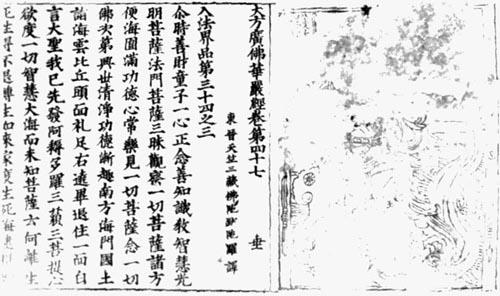 大方廣佛華嚴經卷第四十七 垂
東晉天竺三藏佛陁跋陁羅譯
入法界品第三十四之三
尒時善財童子一心正念善知識教智慧光
明菩薩法門菩薩三昧觀察一切菩薩諸方
便海圓滿功德心常樂見一切菩薩念一切
佛次第興世清淨功德漸趣南方海門國土
詣海雲比丘頭面礼足右遶畢退住一面白
言大聖我已先發阿耨多羅三藐三菩提心
欲度一切智慧大海而未知菩薩云何離生
死生得不退轉生如來家度生死海